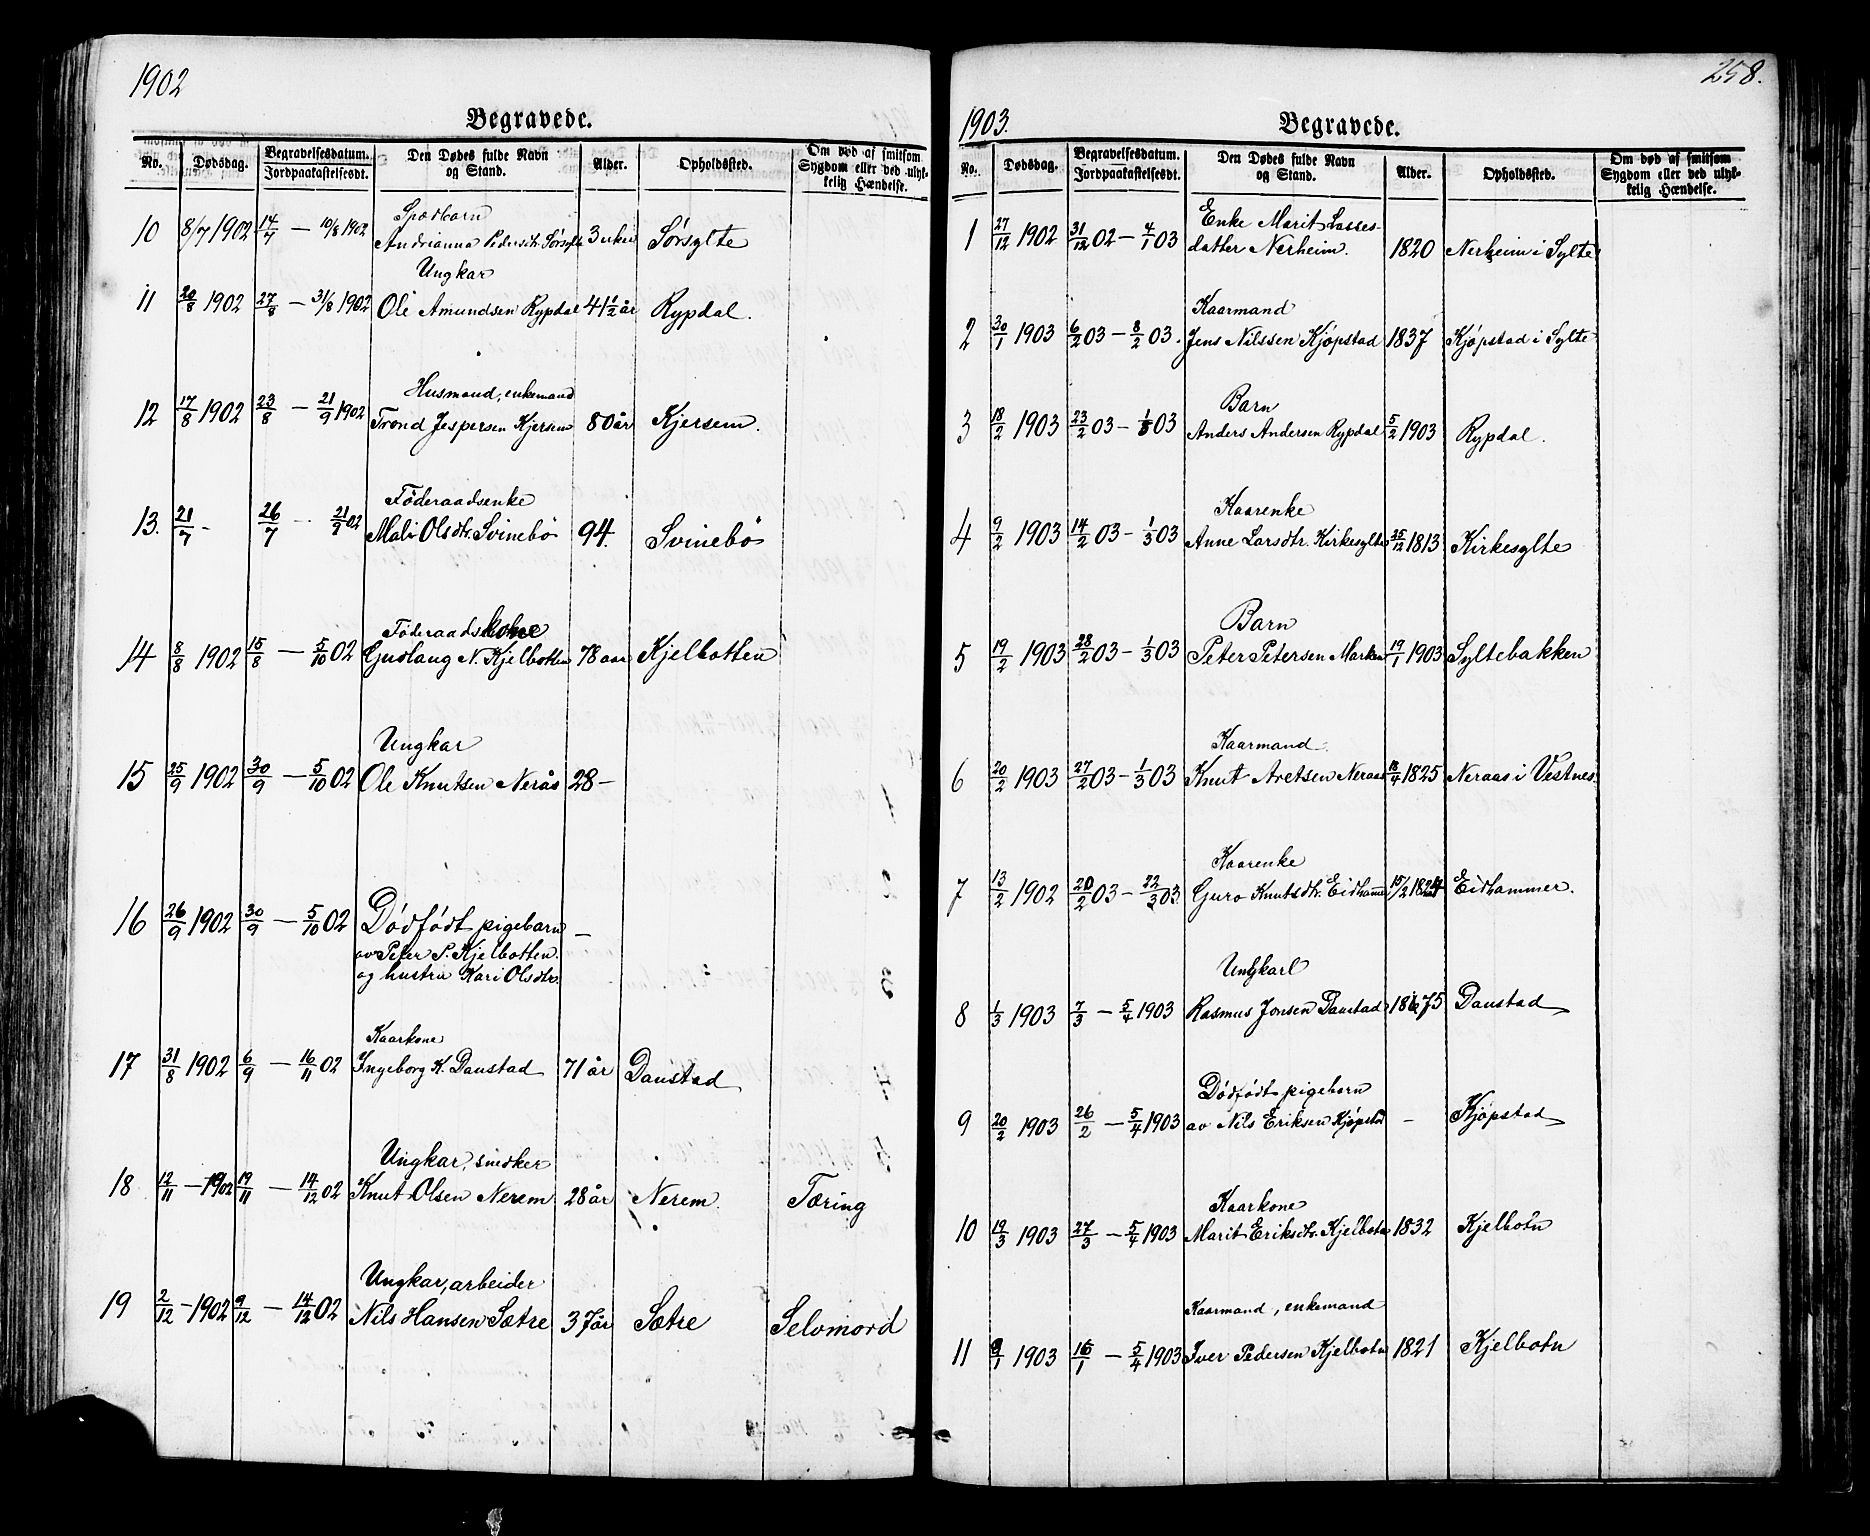 1902
Begravede.
No. Dødsdag. Begravelsesdatum. Jordpaakastelsesdt. Den Dødes fulde Navn og Stand. Alder. Opholdssted. Om død af smitsom Sygdom eller ved ulykkelig Hændelse.
Spædbarn
10 8/7 1902 14/7 — 10/8 1902 Andrianna Pedersdtr. Sørsylte 3 uker Sørsylte
Ungkar
11 20/8 1902 27/8 — 31/8 1902 Ole Amundsen Rypdal 41 1/2 år Rypdal.
Husmand, enkemand
12 17/8 1902 23/8 — 21/9 1902 Trond Jespersen Kjersem 80 år Kjersem.
Føderaadsenke
13. 21/7 - 26/7 — 21/9 02 Mali Olsdtr. Svinebø 94. Svinebø
Føderaadskone
14 8/8 1902 15/8 — 5/10 02 Gudlaug N. Kjelbotten 78 aar Kjelbotten
Ungkar
15 25/9 1902 30/9 — 5/10 02 Ole Knutsen Nerås 28 —
16 26/9 1902 30/9 — 5/10 02 Dødfødt pigebarn —
av Peter P. Kjelbotten
og hustru Kari Olsdtr.
Kaarkone
17 31/8 1902 6/9 — 16/11 02 Ingeborg K. Daustad 71 år Daustad
Ungkar, snedker
18 12/11 — 1902 19/11 — 14/12 02 Knut Olsen Nerem 28 år Nerem. Tæring
Ungkar, arbeider
19 2/12 — 1902 9/12 — 14/12 02 Nils Hansen Sætre 37 år Sætre Selvmord
258.
1903.
Begravede.
No. Dødsdag. Begravelsesdatum. Jordpaakastelsesdt. Den Dødes fulde Navn og Stand. Alder. Opholdssted. Om død af smitsom Sygdom eller ved ulykkelig Hændelse.
Enke Marit Lasses-
1 27/12 1902 31/12 02 — 4/1 03 datter Nerheim. 1820 Nerheim i Sylte
Kaarmand
2 30/1 1903 6/2 03 — 8/2 03. Jens Nilssen Kjøpstad 1837 Kjøpstad i Sylte
Barn
3 18/2 1903 23/2 03 — 1/3 03 Anders Andersen Rypdal 5/2 1903 Rypdal.
Kaarenke
4 9/2 1903 14/2 03 — 1/3 03 Anne Larsdtr. Kirkesylte 25/12 1813 Kirkesylte
Barn
5 19/2 1903 28/2 03 — 1/3 03 Peter Petersen Marken 19/1 1903 Syltebakken
Kaarmand
6 20/2 1903 27/2 03 — 1/3 03 Knut Aretsen Neraas 18/4 1825 Neraas i Vestnes
Kaarenke
7 13/2 1902 20/2 03 — 22/3 03. Guro Knutsdtr. Eidhammer 15/2 Eidhammer.
Ungkarl
8 1/3 1903 7/3 — 5/4 1903 Rasmus Jonsen Daustad 1875 Daustad
Dødfødt pigebarn
9 20/2 1903 26/2 — 5/4 1903 av Nils Eriksen Kjøpstad — Kjøpstad
Kaarkone
10 19/3 1903 27/3 — 5/4 1903 Marit Eriksdtr. Kjelbotn 1832 Kjelbotn
Kaarmand, enkemand
11 9/1 1903 16/1 — 5/4 1903 Iver Pedersen Kjelbotn 1821 Kjelbotn